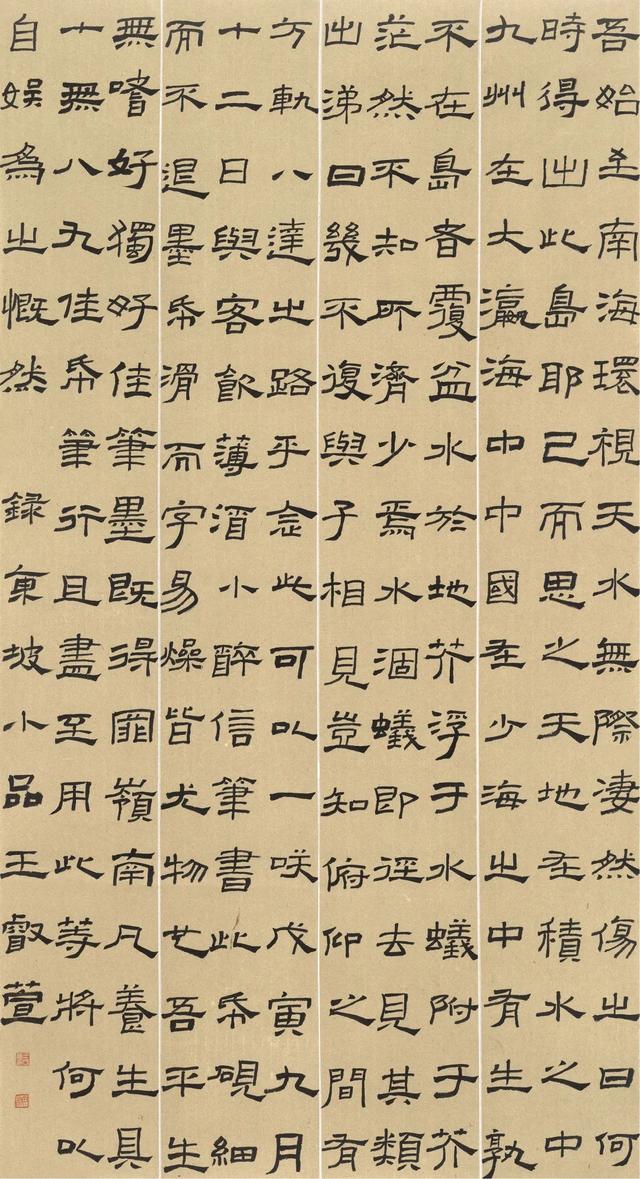 吾始至南海環視天水無際凄然傷之曰何
時得出此島耶已而思之天地在積水之中
九州在大瀛海中中國在少海之中有生孰
不在島者覆盆水於地芥浮于水蟻附于芥
茫然不知所濟少焉水涸蟻即徑去見其類
出涕曰幾不復與子相見豈知俯仰之間有
方軌八達之路乎念此可以一咲戊寅九月
十二日與客飲薄酒小醉信筆書此帋硯細
而不退墨帋滑而字易燥皆尤物也吾平生
無嗜好獨好佳筆墨既得罪嶺南凡養生具
十無八九佳帋筆行且盡至用此等將何以
自娛為之慨然 録東坡小品王叡萱